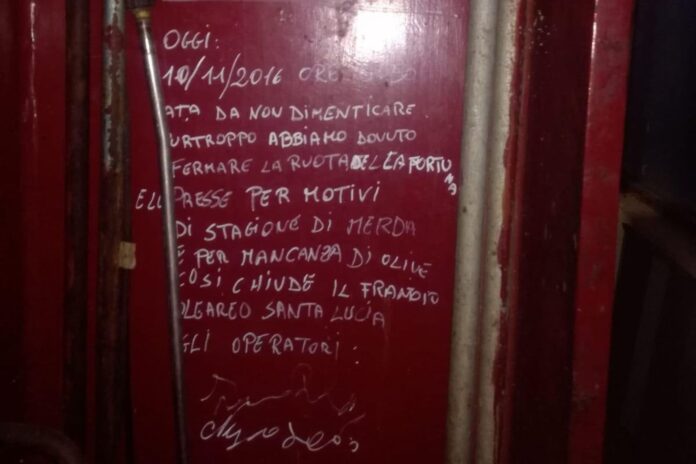 OGGI:
10/11/2016 ORE
ATA DA NON DIMENTICARE
URTROPPO ABBIAMO DOVUTO
FERMARE LA RUOTA DELLA FORTUNA
E LE PRESSE PER MOTIVI
DI STAGIONE DI MERDA
E PER MANCANZA DI OLIVE
COSI CHIUDE IL FRANTOIO
OLEAREO SANTA LUCIA
GLI OPERATORI: